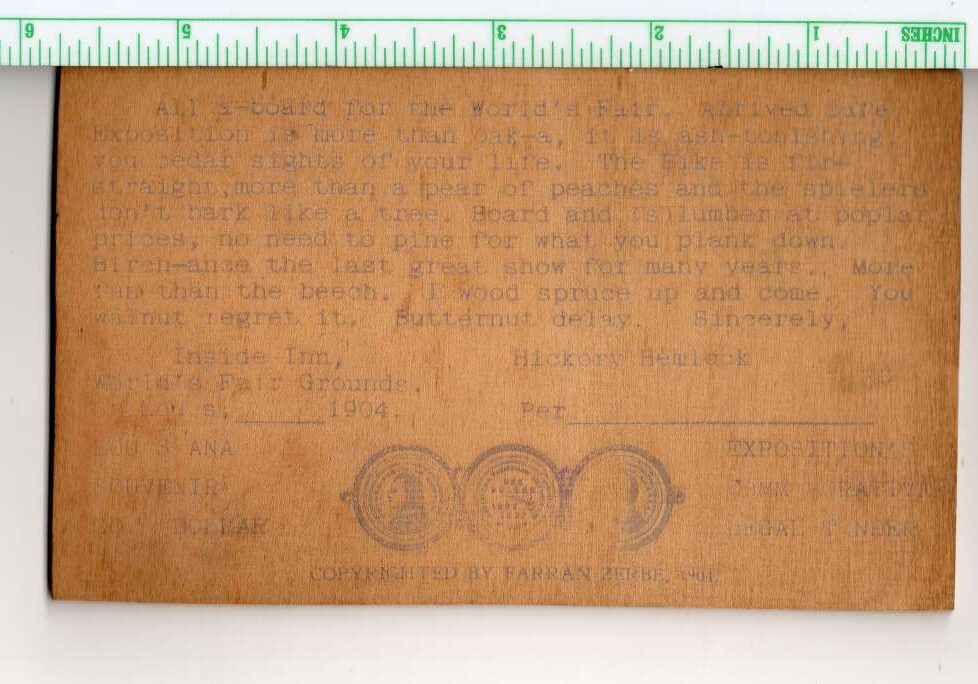 6 5 4 3 2 1 INCHES
All a-board for the World's Fair. Arrived safe.
Exposition is more than oak-a, it is ash-tonishing
you cedar sights of your life. The Pike is fir-
straight, more than a pear of peaches and the spielers
don't bark like a tree. Board and (s)lumber at poplar
prices, no need to pine for what you plank down.
Birch-ance the last great show for many years.. More
fun than the beech. I wood spruce up and come. You
walnut regret it. Butternut delay. Sincerely,
Inside Inn, Hickory Hemlock
World's Fair Grounds.
St. Louis, ______ 1904. Per____________________
EXPOSITION'S
SOUVENIR
DOLLAR LEGAL TENDER
COPYRIGHTED BY FARRAN ZERBE, 1904.